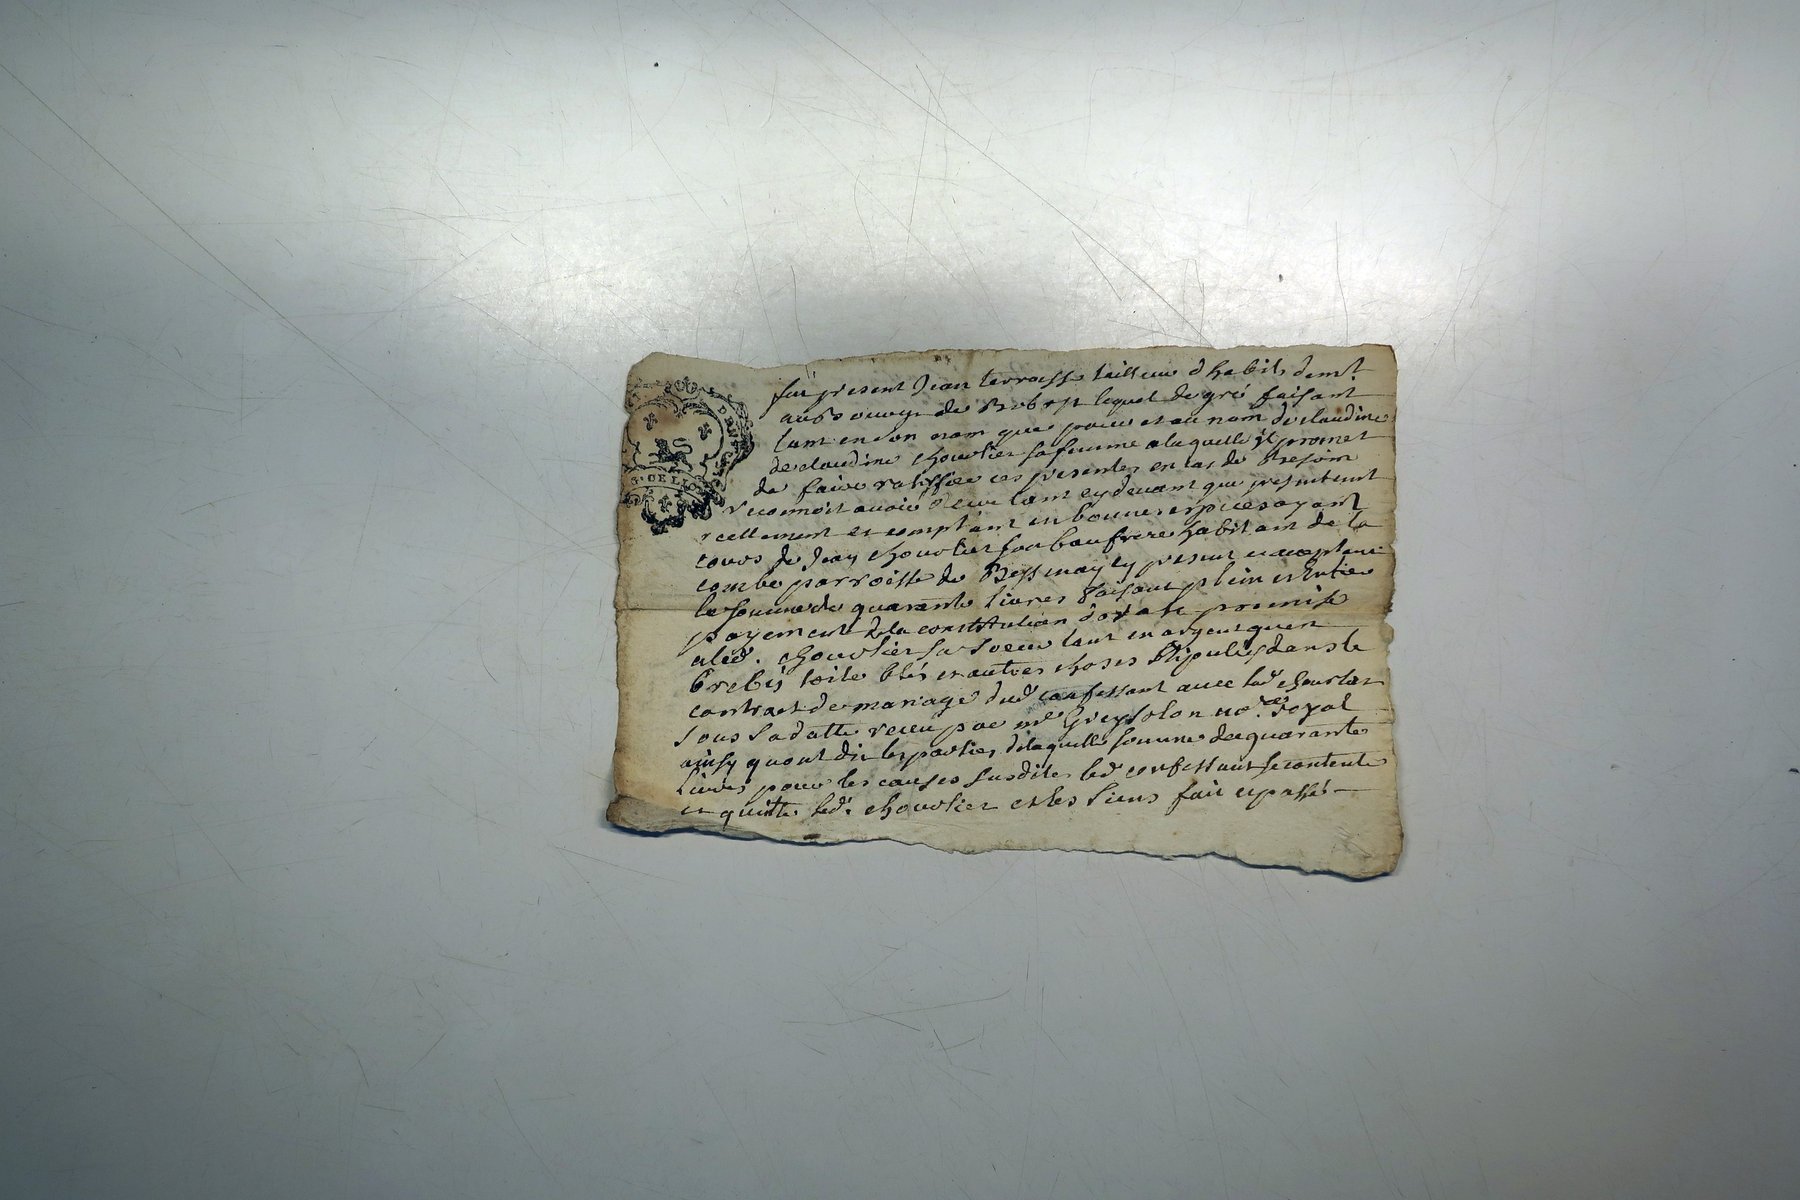 G. DE LION
fut present Jean terrasse tailleur dhabits demt
au bourg de lequel de gré faisant
tant en son nom que pour et au nom de claudine
de claudine chouvlier sa femme a laquelle il promet
de faire ratiffier ces presentes en cas de besoin
reconnoit avoir receu tant cy devant que presentemt
reellement et comptant en bonnes espices ayant
cours de Jean chouvlier son baufrere habitant de la
combe parroisse de Bessenay icy present et acceptant
la somme de quarante livres faisant plein et entier
payement de la constitution dotale promise
aled. chouvlier sa soeur tant en argent quen
brebis toile bles et autres choses stipulés dans le
contract de mariage dud confessant avec lad chouvlier
sous sa datte receu par me Greysolon nore royal
ainsy quont dit les parties de laquelle somme de quarante
livres pour les causes susdites led confessant se contente
et quitte led. chouvlier et les siens fait et passé